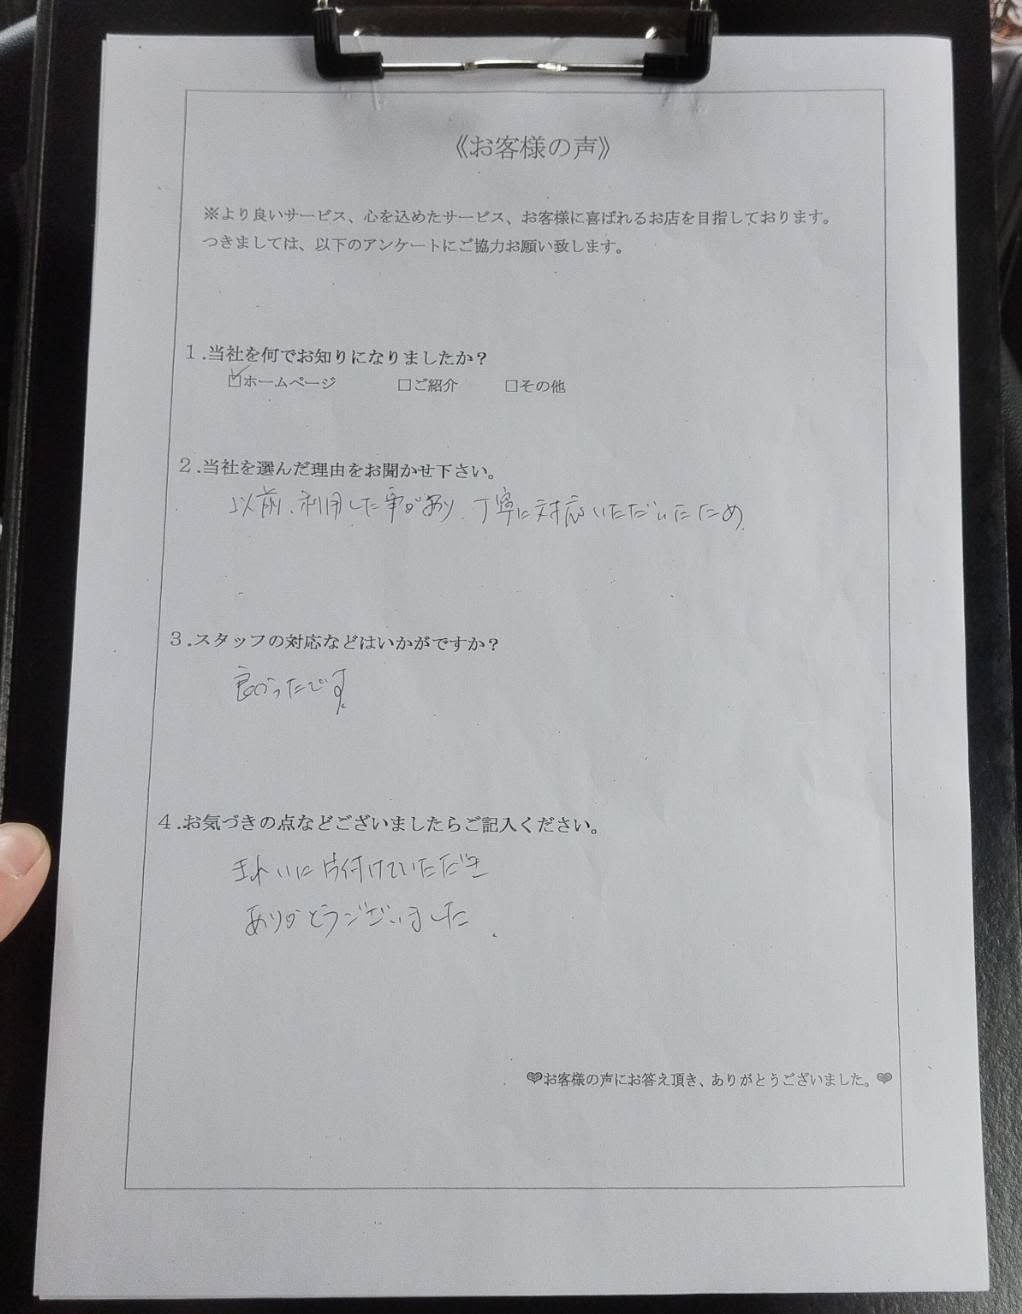 《お客様の声》
※より良いサービス、心を込めたサービス、お客様に喜ばれるお店を目指しております。
つきましては、以下のアンケートにご協力お願い致します。
1.当社を何でお知りになりましたか？
☑ホームページ □ご紹介 □その他
2.当社を選んだ理由をお聞かせ下さい。
以前、利用した事があり、丁寧に対応いただいたため
3.スタッフの対応などはいかがですか？
良かったです。
4.お気づきの点などございましたらご記入ください。
きれいに片付けていただき
ありがとうございました。
♥お客様の声にお答え頂き、ありがとうございました。♥